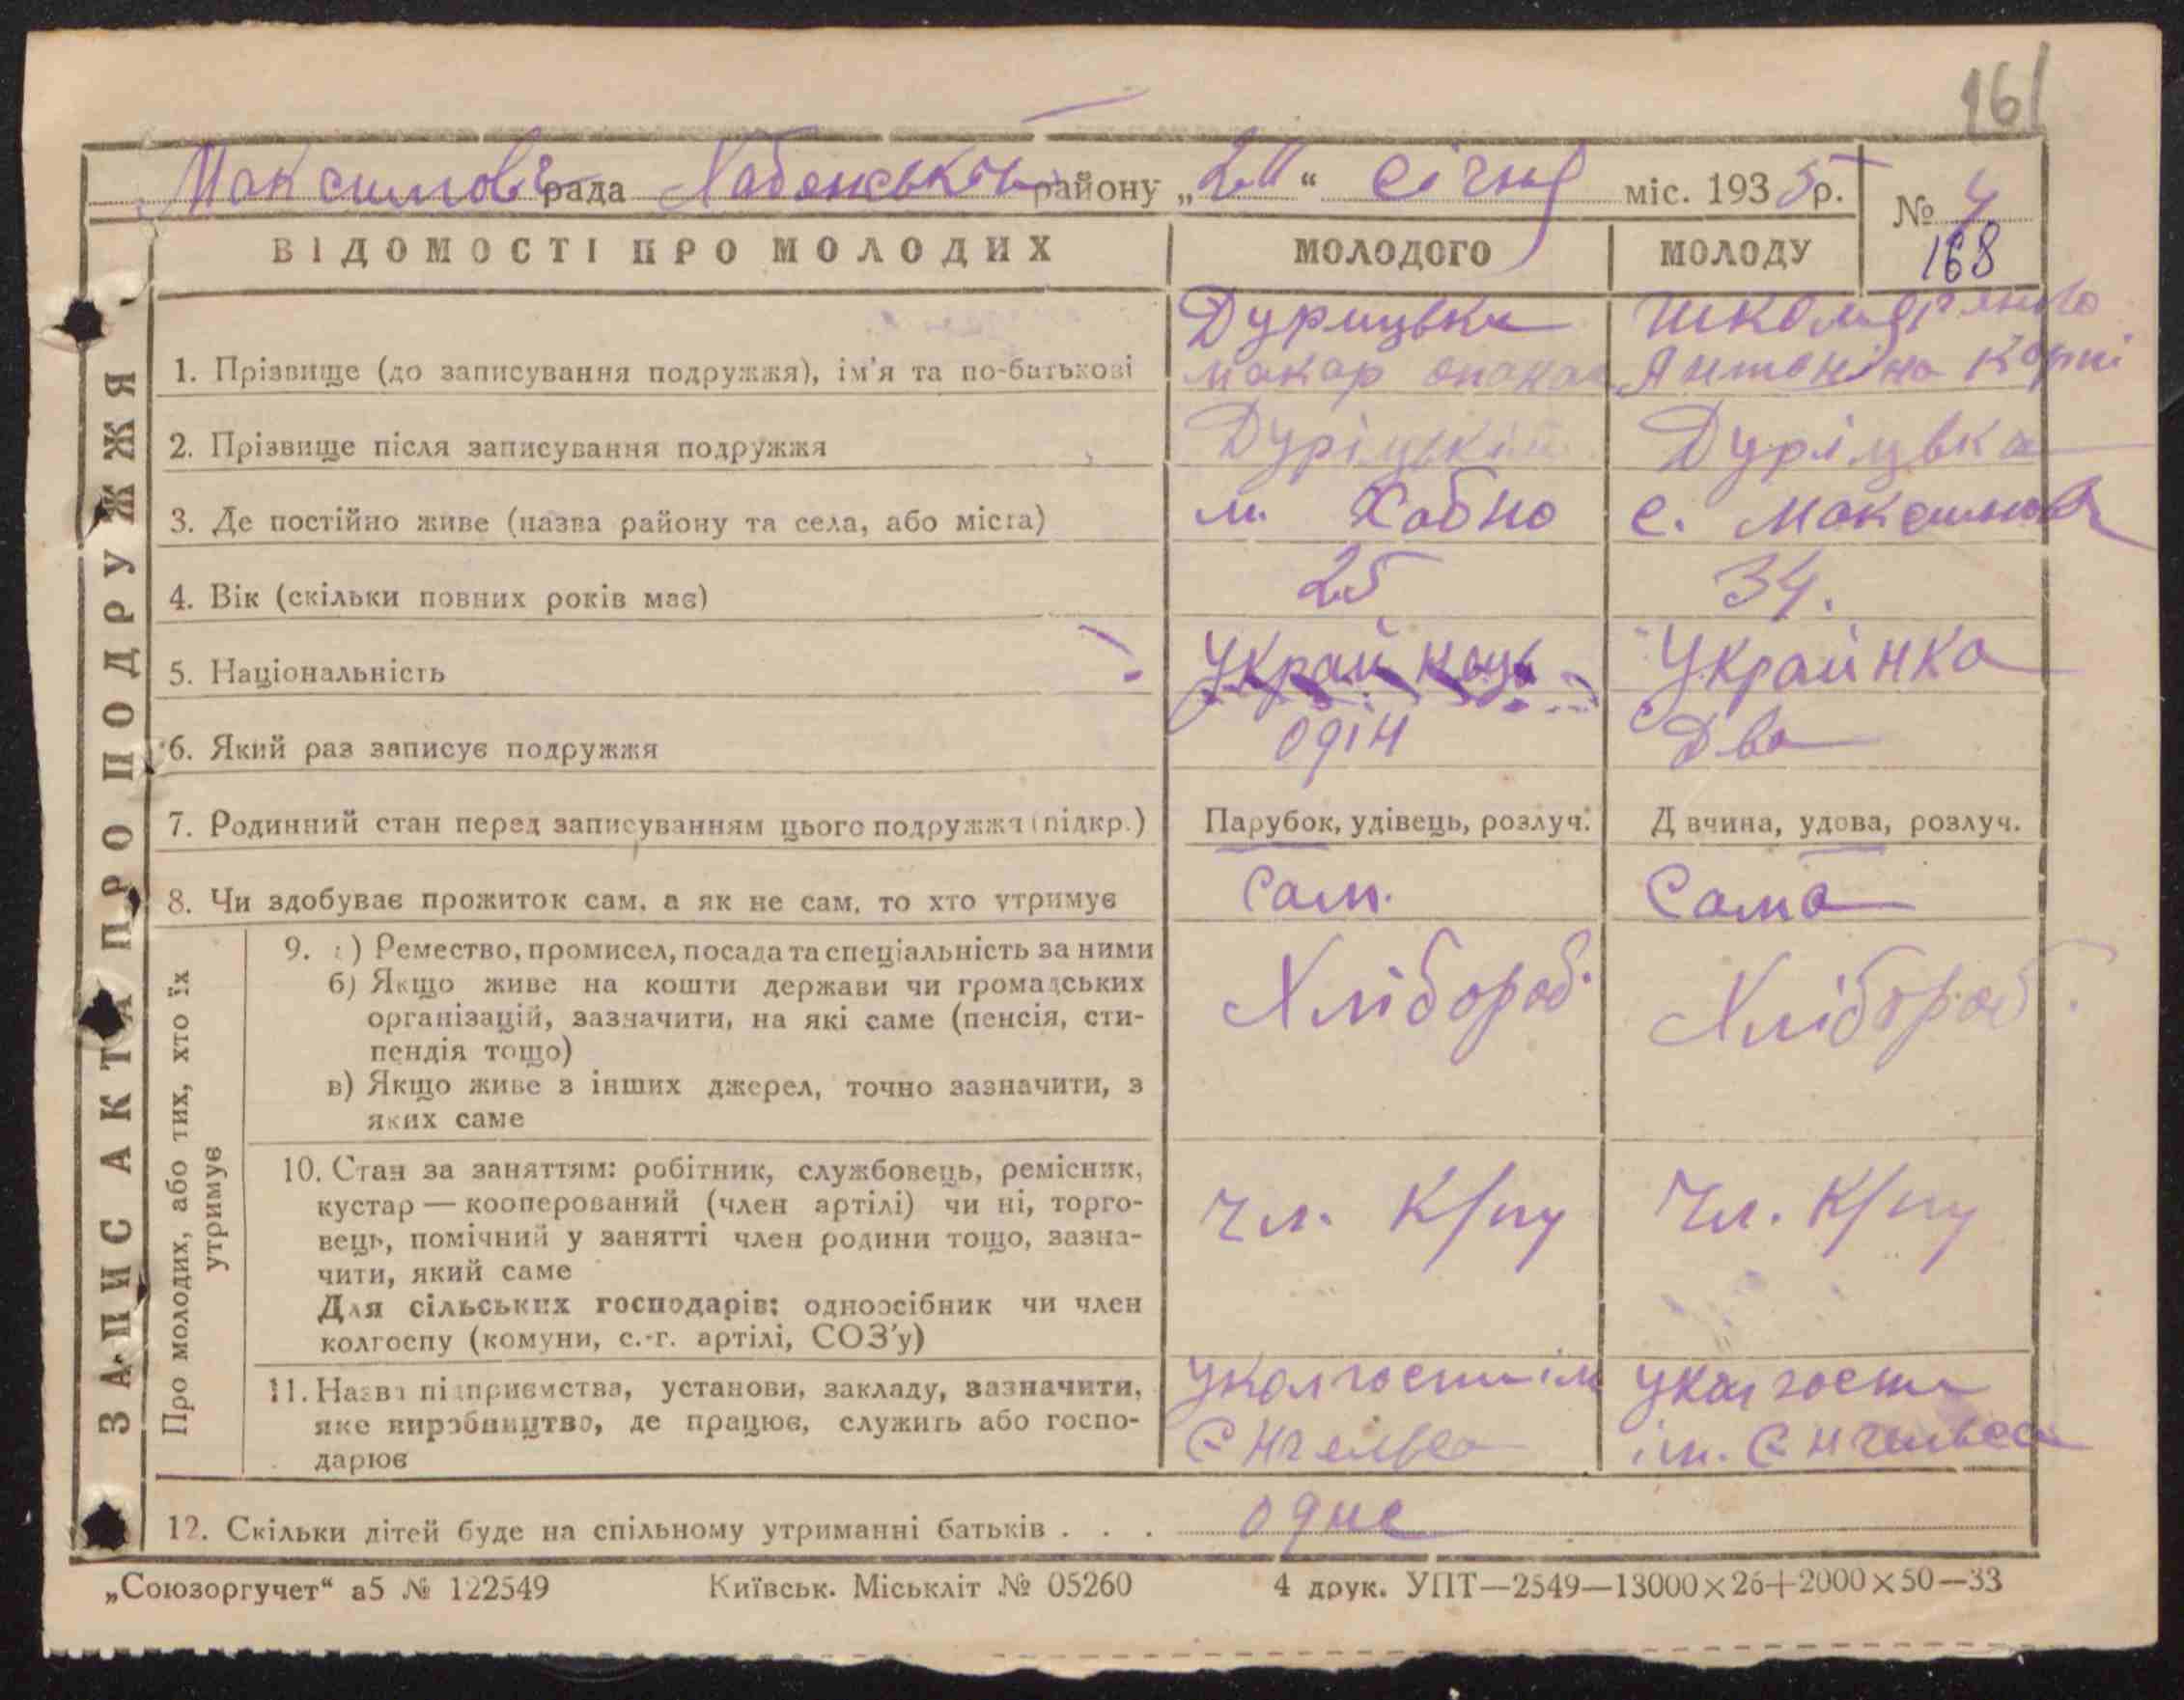 161
Максимовр рада Хабенського району „2“ січня міс. 1935 р.
№ 4
168
ВІДОМОСТІ ПРО МОЛОДИХ
МОЛОДОГО
МОЛОДУ
Дурицьки
Школяренко
1. Прізвище (до записування подружжя), ім'я та по-батькові
Макар
Антоніна Корні
2. Прізвище після записування подружжя
Дуріцький
Дуріцька
3. Де постійно живе (назва району та села, або міста)
м. Хабно
с. Максимов
4. Вік (скільки повних років має)
25
34.
5. Національність
Украйнець
Украйнка
6. Який раз записує подружжя
одін
Два
7. Родинний стан перед записуванням цього подружжя (підкр.)
Парубок, удівець, розлуч.
Д вчина, удова, розлуч.
8. Чи здобуває прожиток сам, а як не сам, то хто утримує
Сам.
Сама
9. а) Ремество, промисел, посада та спеціальність за ними
б) Якщо живе на кошти держави чи громадських
організацій, зазначити, на які саме (пенсія, сти-
пендія тощо)
в) Якщо живе з інших джерел, точно зазначити, з
яких саме
Хлібороб.
Хлібороб.
10. Стан за заняттям: робітник, службовець, ремісник,
кустар — кооперований (член артілі) чи ні, торго-
вець, помічний у занятті член родини тощо, зазна-
чити, який саме
Для сільських господарів: одноосібник чи член
колгоспу (комуни, с.-г. артілі, СОЗ'у)
Чл. К/пу
Чл. К/пу
11. Назва підприємства, установи, закладу, зазначити,
яке виробництво, де працює, служить або госпо-
дарює
Уколгоспи ім
Єнгельса
Уколгоспи
ім. Єнгельса
12. Скільки дітей буде на спільному утриманні батьків . . .
одне
ЗАПИС АКТА ПРО ПОДРУЖЖЯ
Про молодих, або тих, хто їх
утримує
„Союзоргучет“ а5 № 122549
Київськ. Міськліт № 05260
4 друк. УПТ—2549—13000×26+2000×50—33